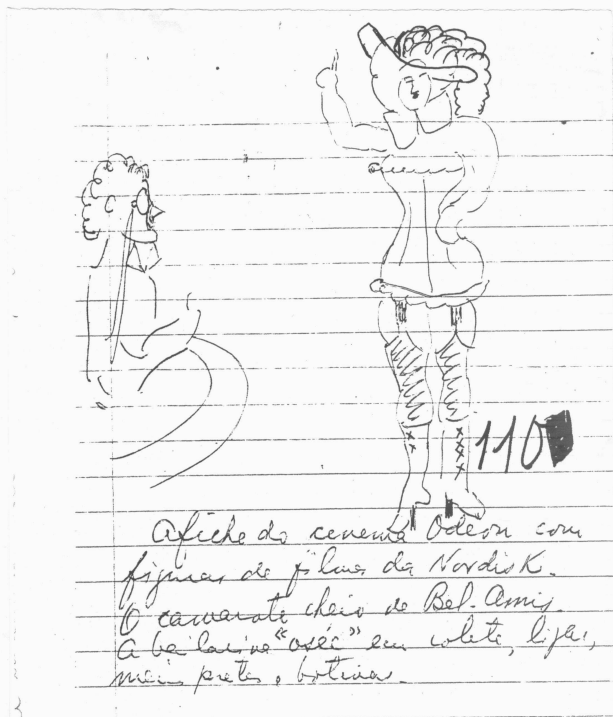 110
Afiche do cenema Odeon com
figuras de filmes da Nordisk.
O camarote cheio de Bel-Amis.
A bailarina "osée" em colete, ligas,
meias pretas, botinas.